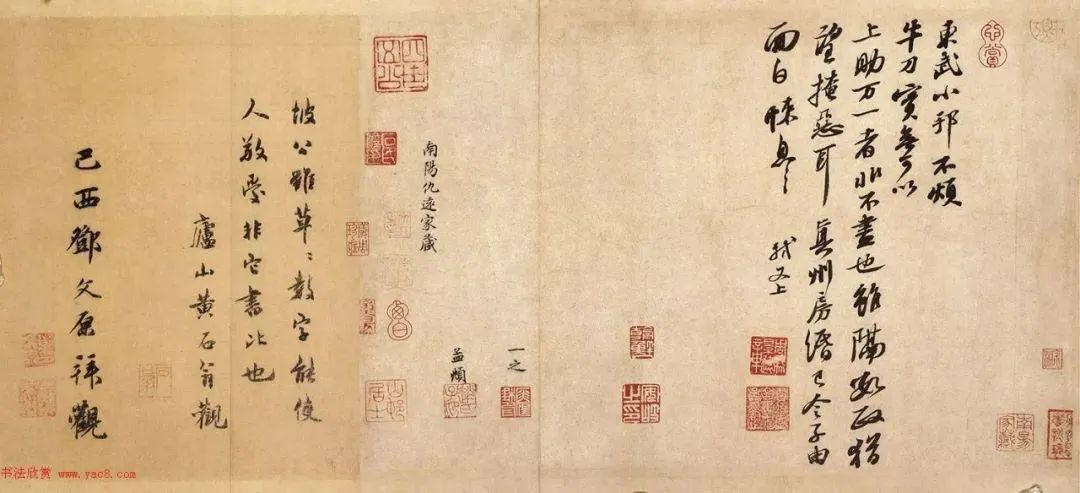 東武小邦不煩
牛刀實無可以
上助万一者非不盡也雖隔數政猶
望掩惡耳 真州房緡已令子由
面白悚息〻 軾又上
一之
孟頫
南陽仇遠家藏
坡公雖草〻數字能使
人敬愛非它書比也
廬山黃石翁觀
己酉鄧文原拜觀
山邨居士
书法欣赏 www.yac8.com